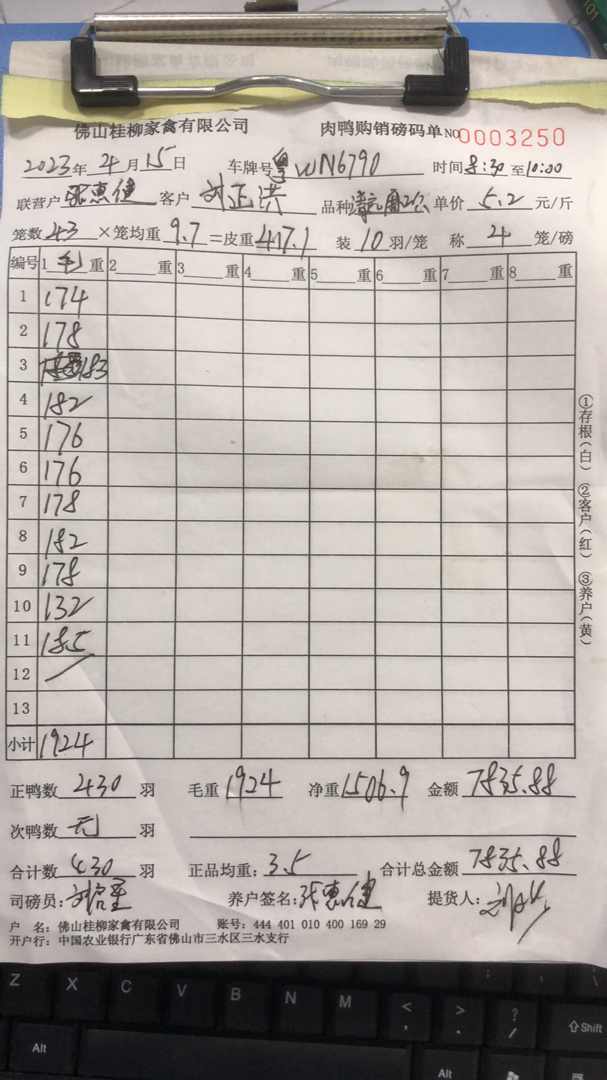 佛山桂柳家禽有限公司 肉鸭购销磅码单 NO 0003250
2023年4月15日 车牌号粤WN6790 时间8:30至10:00
联营户张惠健 客户刘正洪 品种 单价5.2元/斤
笼数43×笼均重9.7=皮重417.1 装10羽/笼 称4笼/磅
编号 1毛重 2重 3重 4重 5重 6重 7重 8重
1 174
2 178
3 183
4 182
5 176
6 176
7 178
8 182
9 178
10 132
11 185
12
13
小计 1924
①存根(白) ②客户(红) ③养户(黄)
正鸭数430羽 毛重1924 净重1506.9 金额7835.88
次鸭数无羽
合计数430羽 正品均重:3.5 合计总金额7835.88
司磅员: 养户签名:张惠健 提货人:
户 名: 佛山桂柳家禽有限公司 账号: 444 401 010 400 169 29
开户行: 中国农业银行广东省佛山市三水区三水支行
Z X C V B N M < , > . ? / Shift
Alt Alt
101